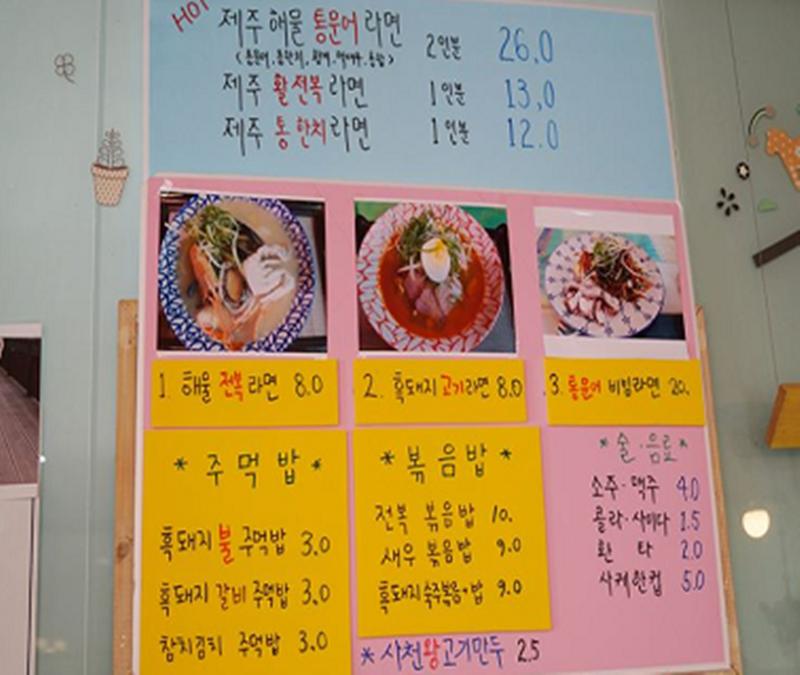 HOT
제주 해물 통문어 라면 2인분 26,0
제주 활전복 라면 1인분 13,0
제주 통한치라면 1인분 12.0
1. 해물 전복 라면 8.0
2. 흑돼지 고기라면 8.0
3. 통문어 비빔라면 20.
* 주먹밥 *
흑돼지 불 주먹밥 3.0
흑돼지 갈비 주먹밥 3.0
참치김치 주먹밥 3.0
* 볶음밥 *
전복 볶음밥 10.
새우 볶음밥 9.0
흑돼지숙주볶음밥 9.0
* 사천왕고기만두 2.5
* 술·음료 *
소주·맥주 4.0
콜라·사이다 1.5
환타 2.0
사케한컵 5.0